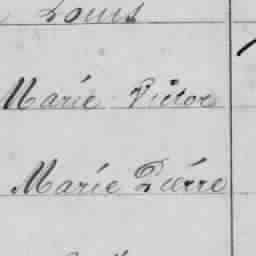 Louis
Marie Victor
Marie Pierre